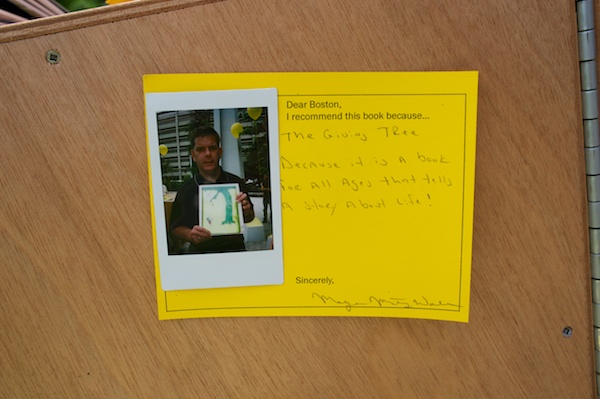 Dear Boston,
I recommend this book because...
The Giving Tree
Because it is a book
for All Ages that tells
A story About Life!
Sincerely,
Mayor Marty Walsh